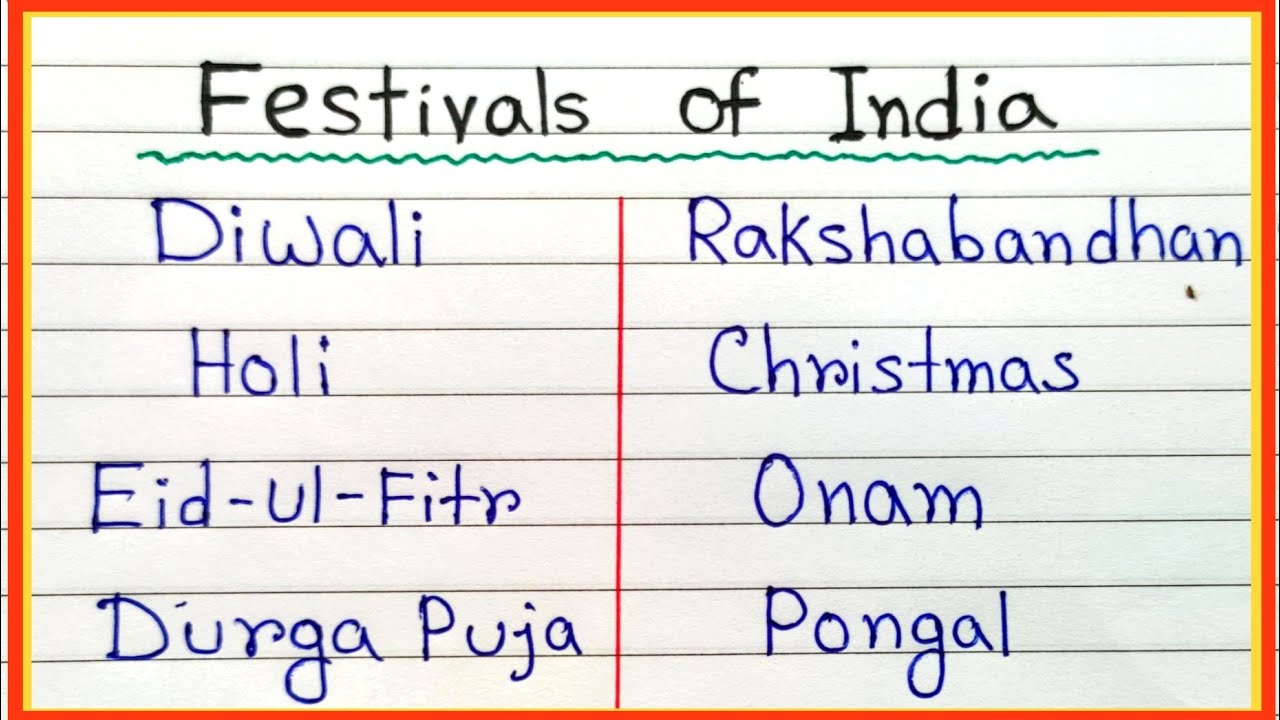 Festivals of India
Diwali
Holi
Eid-ul-Fitr
Durga Puja
Rakshabandhan
Christmas
Onam
Pongal